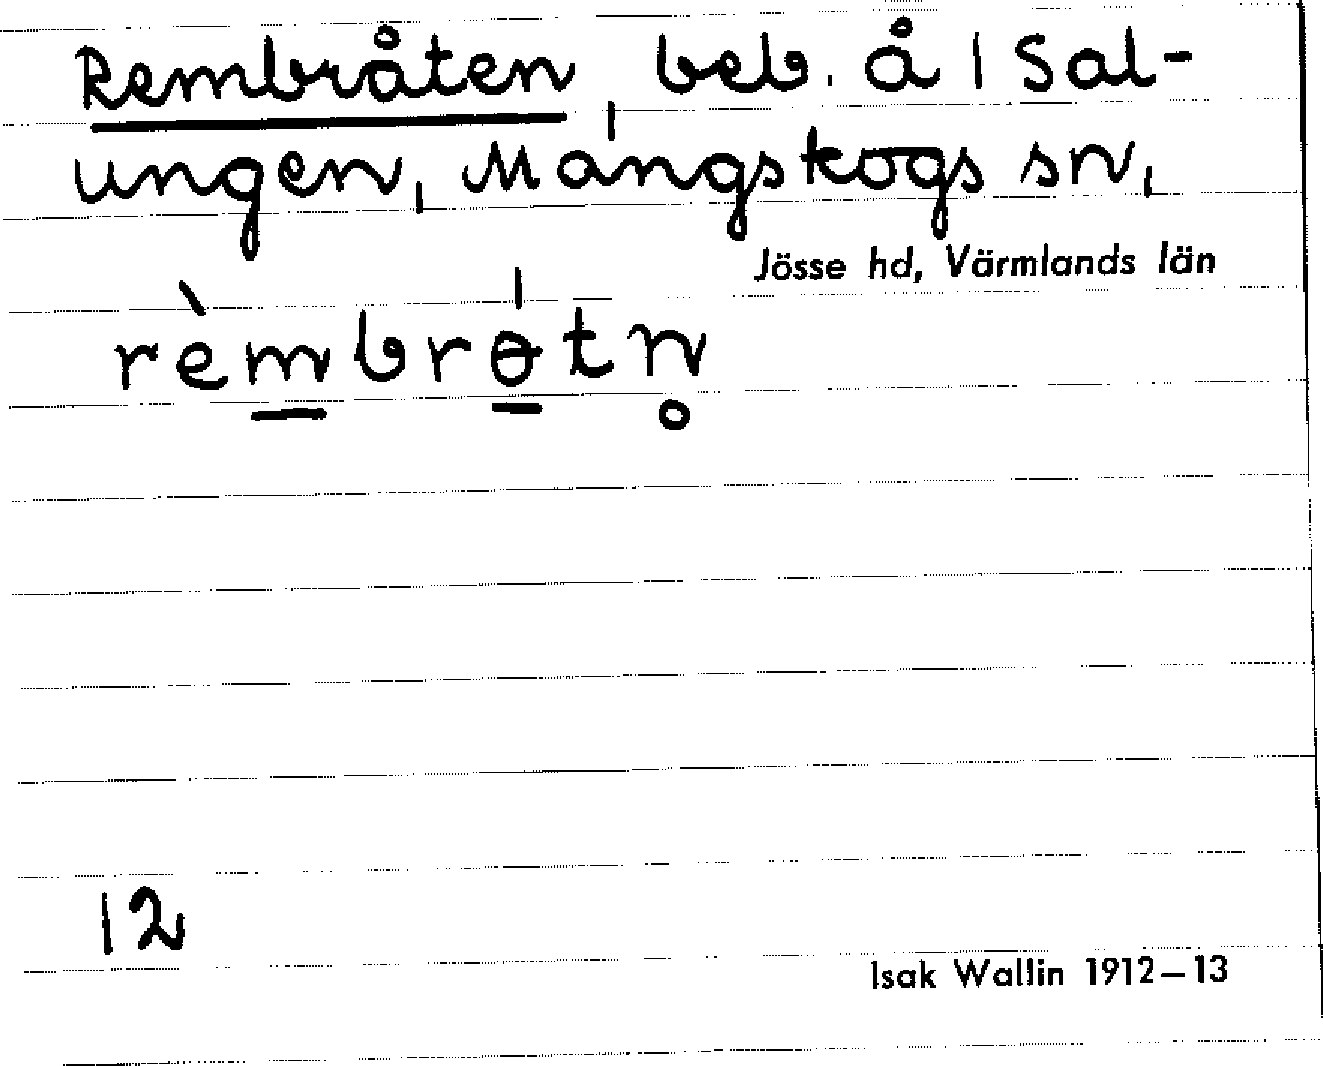 Rembråten, beb. å 1 Sal-
ungen, Mangskogs sn,
Jösse hd, Värmlands län
rèm̲brɵ̲́tn̥
12
Isak Wallin 1912–13